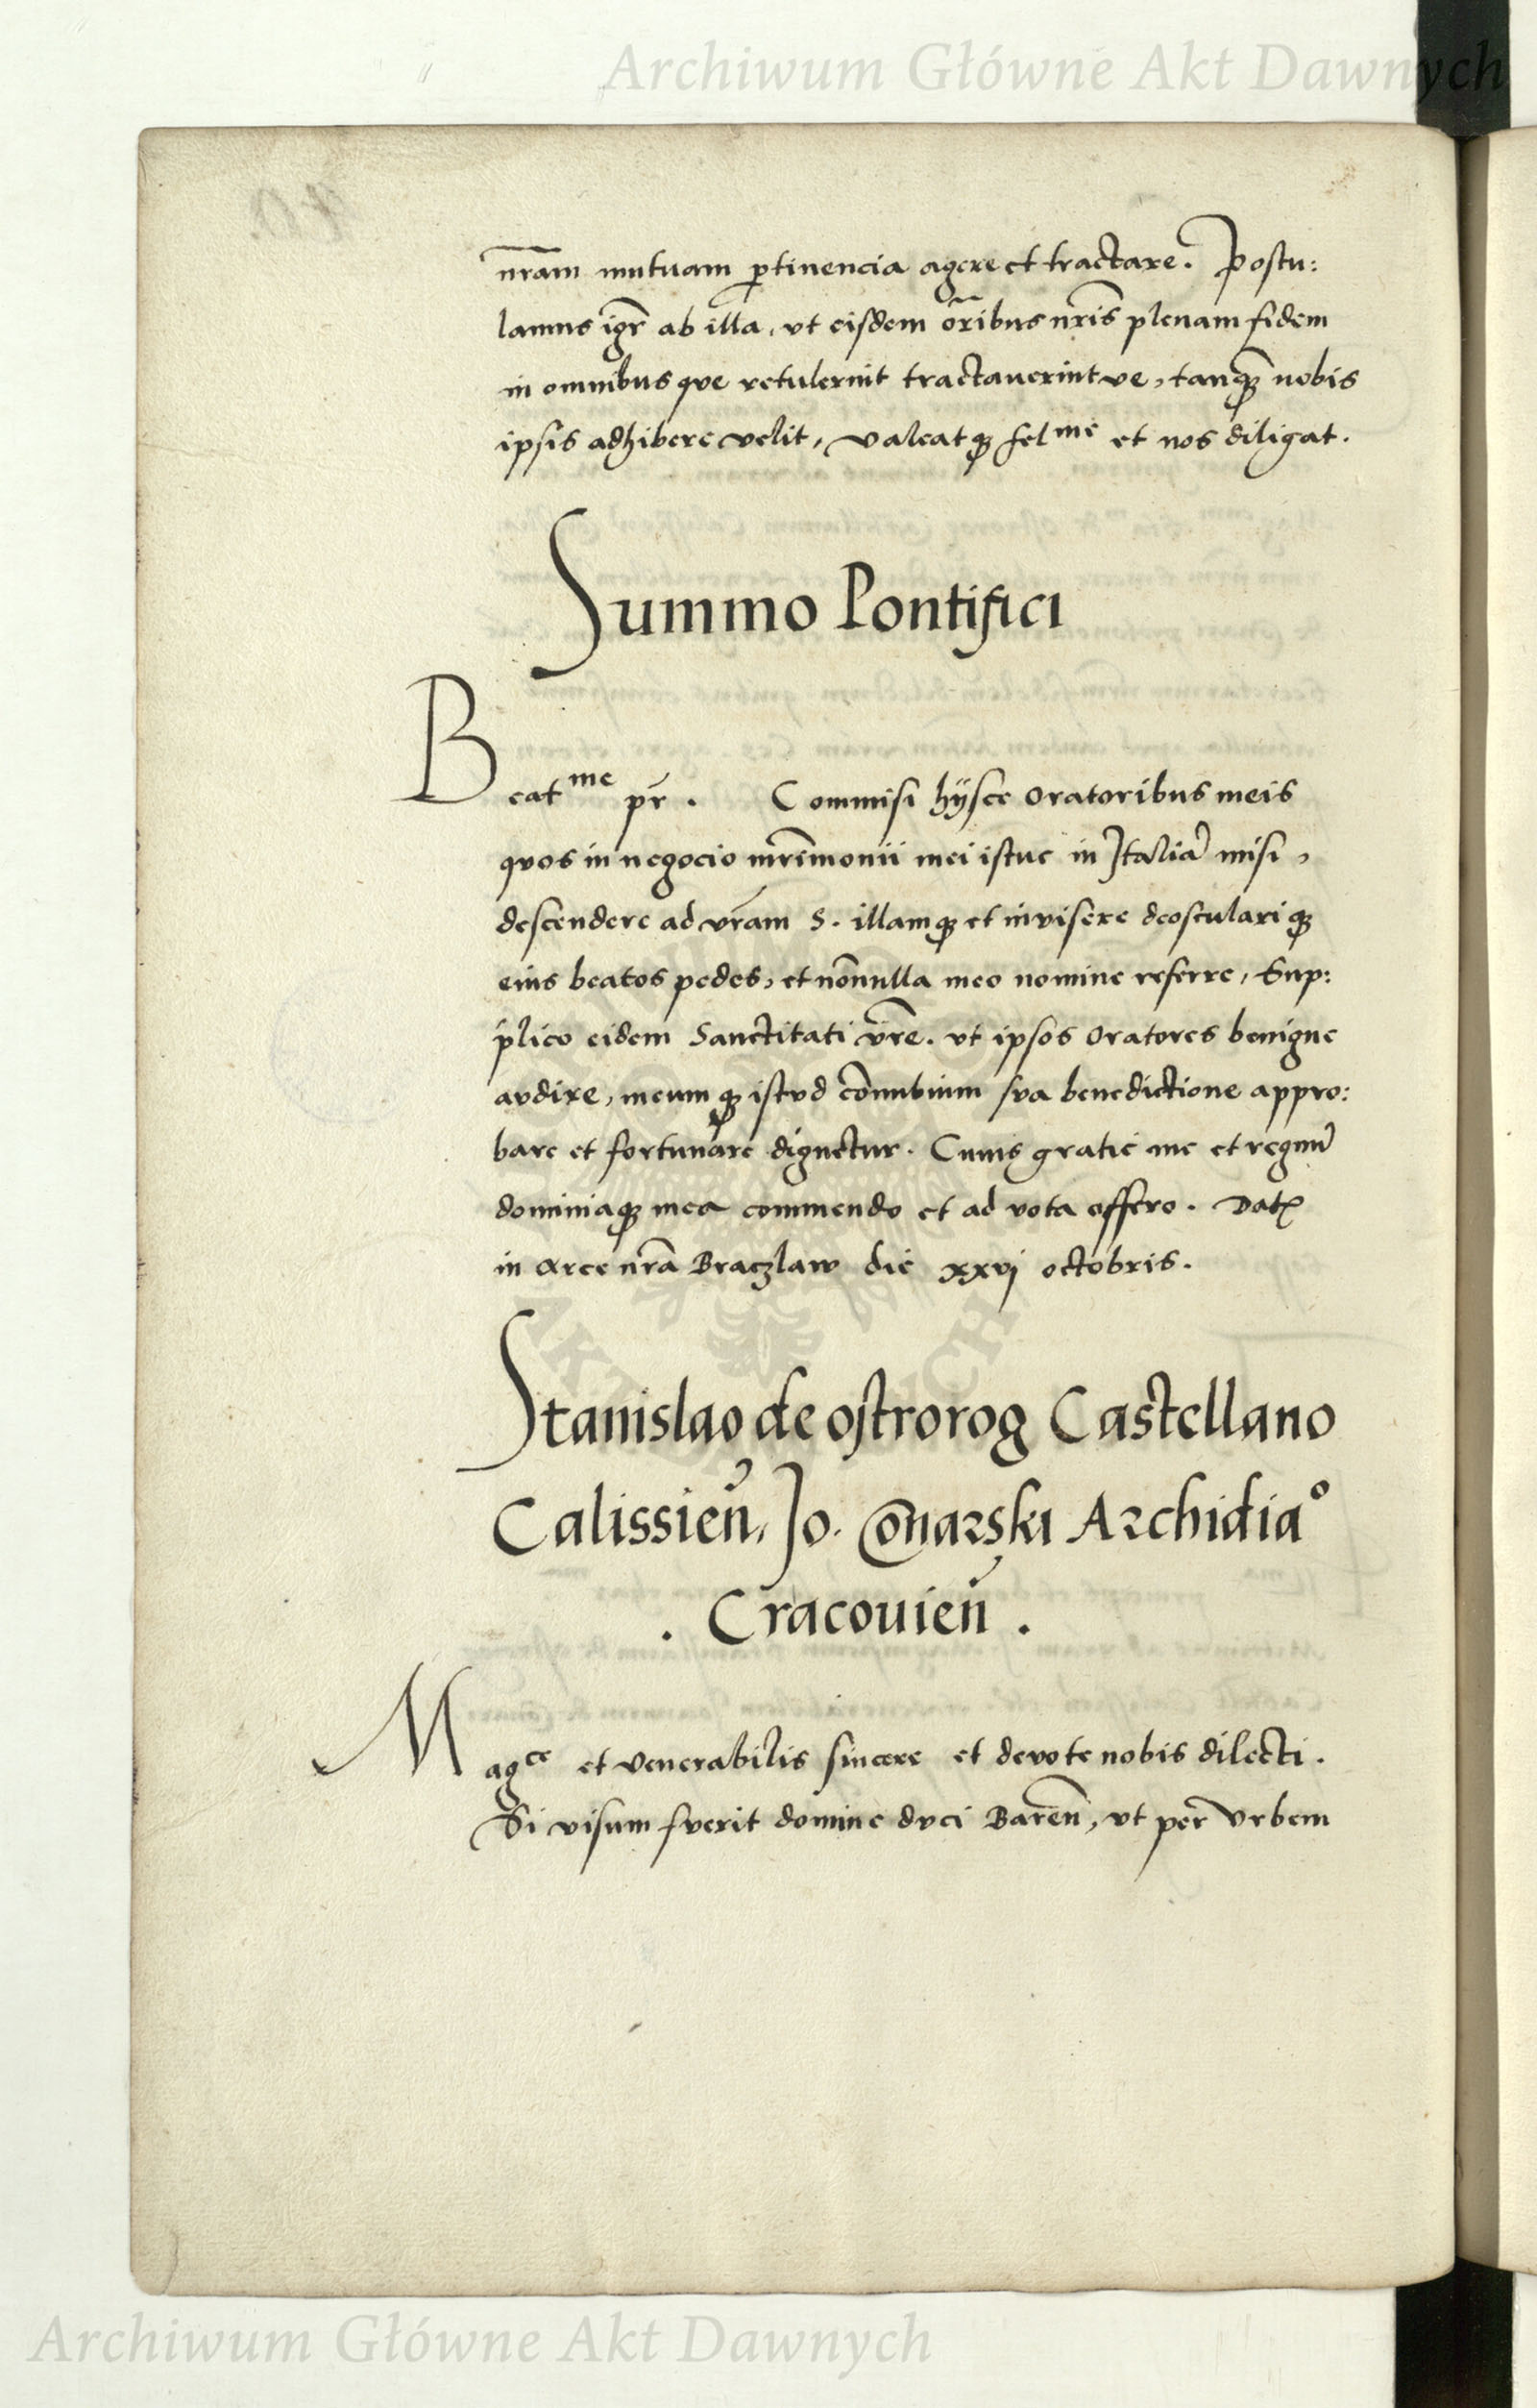 Archiwum Główne Akt Dawnych
nr̃am mutuam ꝑtinencia agere et tractare. Postu:
lamus igr̃ ab illa, vt eisdem or̃ibus nr̃is plenam fidem
in omnibus que retulerint tractauerintve, tanqȝ nobis
ipsis adhibere velit, valeatqȝ fel^me et nos diligat.
Summo Pontifici
Beat^me pr̃. Commisi hÿsce oratoribus meis
quos in negocio mr̃imonii mei istuc in Italiã misi,
descendere ad vr̃am S. illamqȝ et invisere deosculariqȝ
eius beatos pedes, et nõnulla meo nomine referre, Sup:
plico eidem Sanctitati vr̃e. vt ipsos oratores benigne
avdire, meumqȝ istvd cõnubium sva benedictione appro:
bare et fortunare dignetur. Cuius gratie me et regnũ
dominiaqȝ mea commendo et ad vota offero. Datꝭ
in arce nr̃a Braczlaw die xxvj octobris.
Stanislao de ostrorog Castellano
Calissieñ, Jo. Cõnarski Archidia^o
. Cracouieñ .
Mag^ce et venerabilis sincere et devote nobis dilecti.
Si visum fverit domine dvci Bareñ, vt per vrbem
AKT DAWNYCH
Archiwum Główne Akt Dawnych